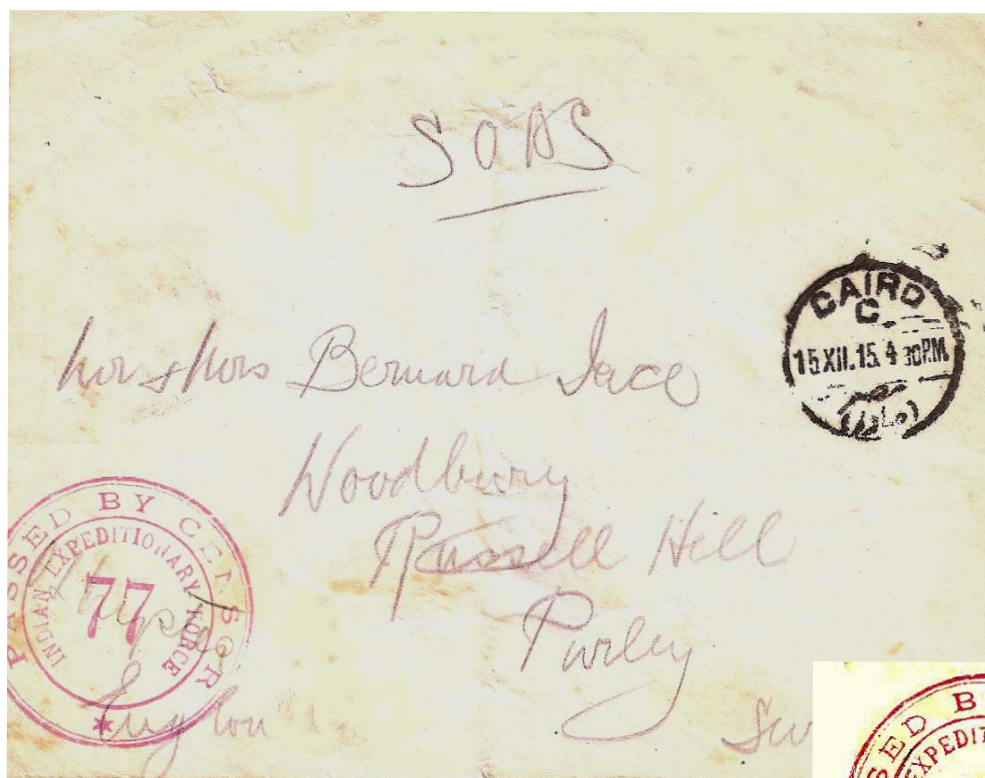 SOAS
CAIRO
C.
15 XII. 15. 4 30 P.M.
Mr & Mrs Bernard
Woodbury
Russell Hill
Purley
PASSED BY CENSOR
INDIAN EXPEDITIONARY FORCE
77
Englan
Su
SED B
EXPEDIT